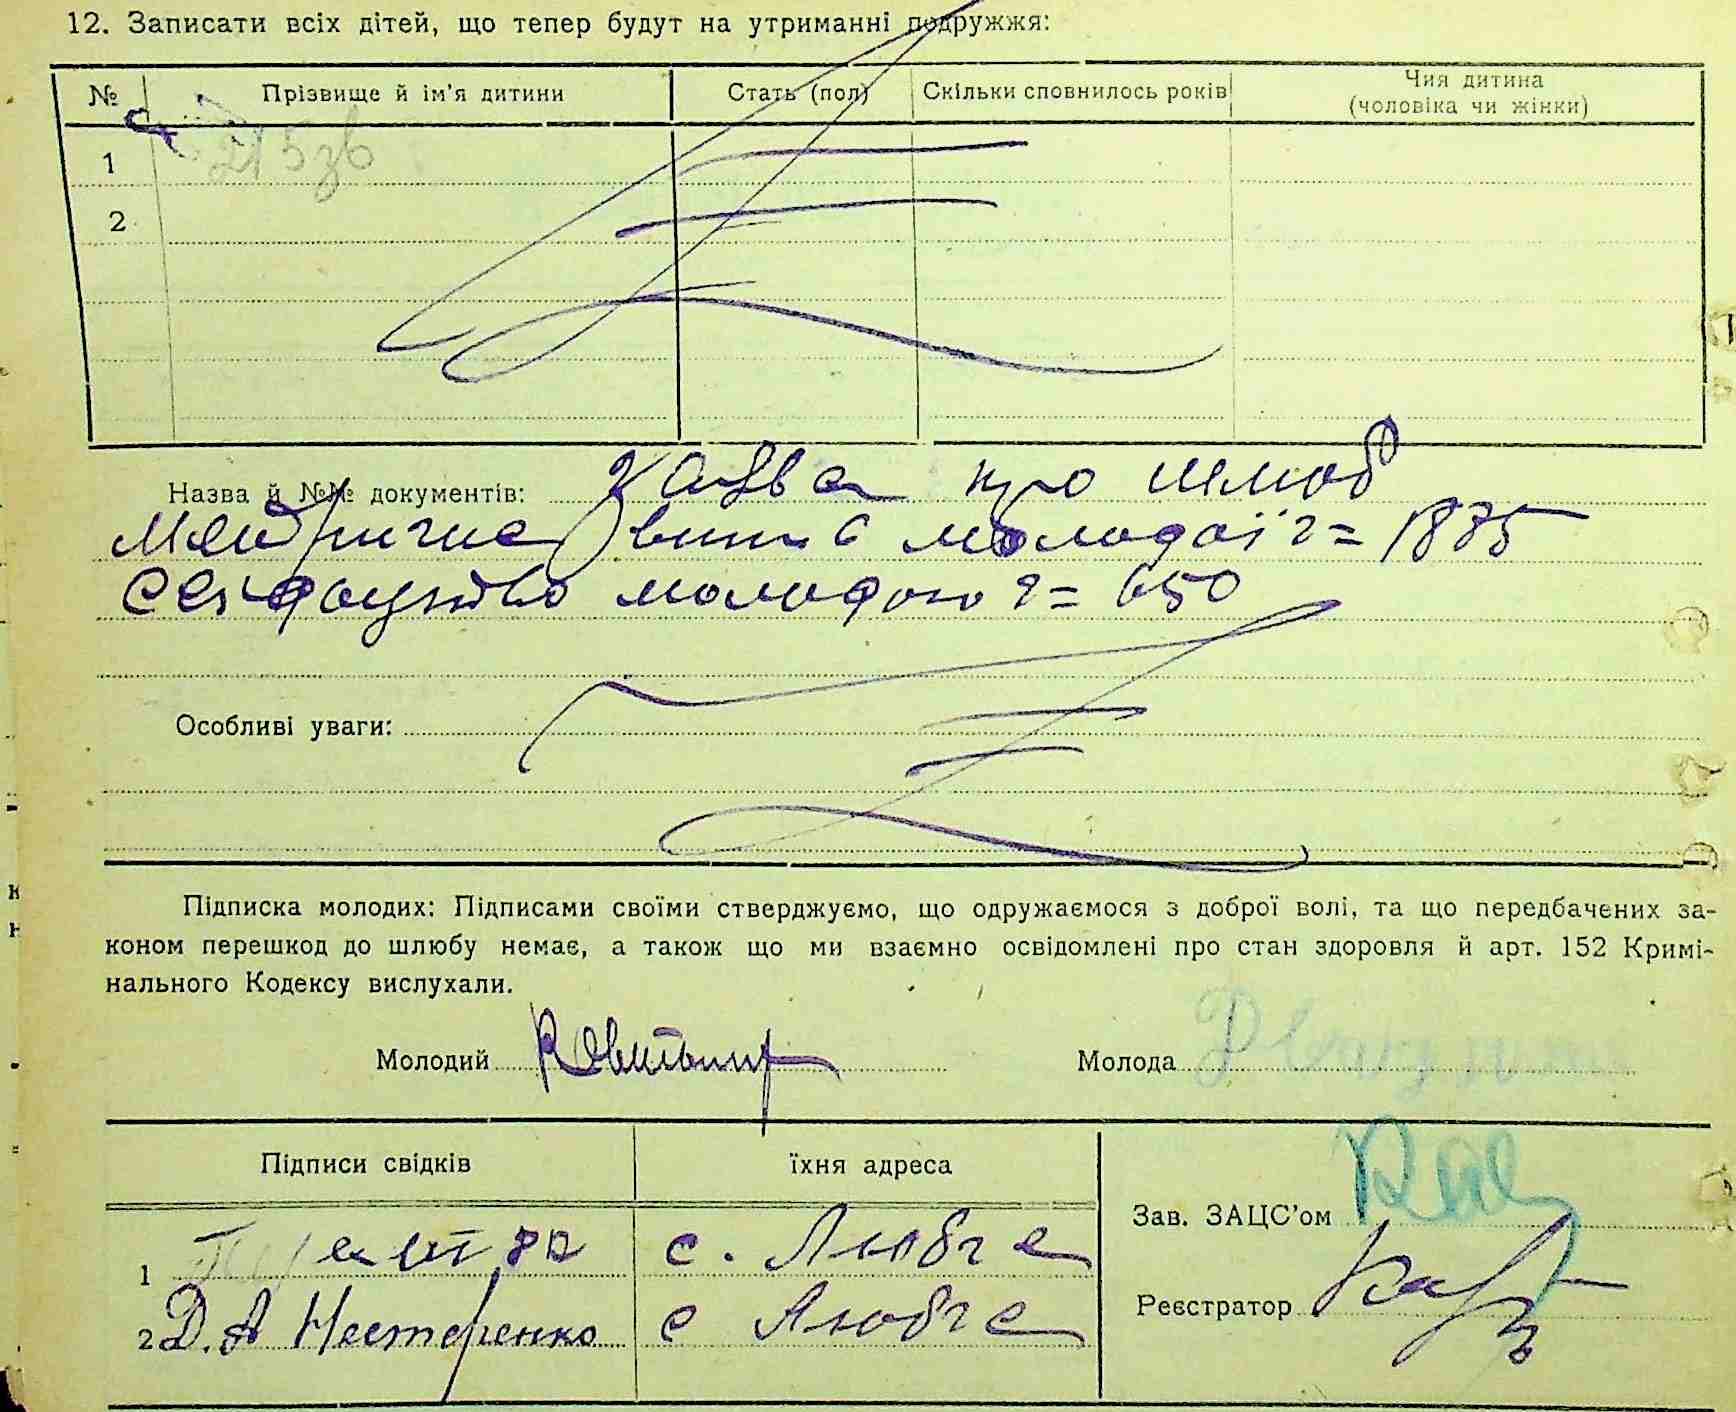 12. Записати всіх дітей, що тепер будут на утриманні подружжя:
№ Прізвище й ім'я дитини Стать (пол) Скільки сповнилось років Чия дитина (чоловіка чи жінки)
1
2
Назва й №№ документів: про шлюб
молодої 1875
молодого 650
Особливі уваги:
Підписка молодих: Підписами своїми стверджуємо, що одружаємося з доброї волі, та що передбачених за-
коном перешкод до шлюбу немає, а також що ми взаємно освідомлені про стан здоровля й арт. 152 Кримі-
нального Кодексу вислухали.
Молодий Молода
Підписи свідків їхня адреса
Зав. ЗАЦС'ом
1 с. Любче
Реєстратор
2 Д. А Нестеренко с Любче